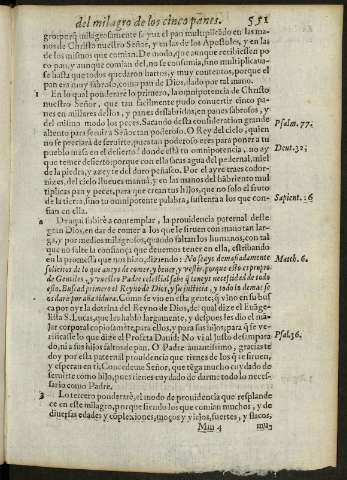 del milagro de los cinco panes. 551
gro: porq̃ milagrosamente se yua el pan multiplicãdo en las ma-
nos de Christo nuestro Señor, y en las de los Apostoles, y en las
de los mismos que comian. De modo, que aunque recibiessen po
co pan, y aunque comian del, no se consumia, sino multiplicaua-
se hasta que todos quedaron hartos, y muy contentos, porque el
pan era muy sabroso, como pan de Dios, dado por tal mano.
1 En lo qual ponderarè lo primero, la omnipotencia de Christo
nuestro Señor, que tan facilmente pudo conuertir cinco pa-
nes en millares dellos, y panes desabridos, en panes sabrosos, y
del mismo modo los peces. Sacando desta consideration grande
Psalm. 77.
aliento para seruir a Señor tan poderoso. O Rey del cielo, quien
no se preciarà de seruirte, pues tan poderoso eres para poner a tu
pueblo mesa en el desierto? donde està tu omnipotencia, no ay
Deut. 32.
que temer desierto: porque con ella sacas agua del pedernal, miel
de la piedra, y azeyte del duro peñasco. Por el ayre traes codor-
nizes, del cielo llueues mannà, y en las manos del hábriento mul
tiplicas pan y peces, para que crean tus hijos, que no solo el fruto
de la tierra, sino tu omnipotente palabra, sustenta a los que con-
Sapient. 16
fian en ella.
2 De aqui subirè a contemplar, la prouidencia paternal deste
gran Dios, en dar de comer a los que le siruen con manutan lar-
ga, y por medios milagrosos, quando faltan los humanos, con tal
que no falte la confiança que deuemos tener en ella, estriuando
en la promessa que nos hizo, diziendo: No seays demasiadamente
Math. 6.
solicitos de lo que aueys de comer, y beuer, y vestir, porque esto es propio
de Gentiles, y vuestro Padre celestial sabe q̃ teneys necessidad de todo
esto. Buscad primero el Reyno de Dios, y su justicia, y todo lo demas se
os darà por añadidura. Como se vio en esta gente, q̃ vino en su bus
ca por oyr la dotrina del Reyno de Dios, del qual dize el Euãge-
lista S. Lucas, que les hablò largamente, y despues les dio el man
jar corporal copiosamẽte, para ellos, y para sus hijos, para q̃ se ve-
rificasse lo que dize el Profeta Dauid: No vi al Iusto desampara
Psal. 36.
do, ni a sus hijos faltos de pan. O Padre amantissimo, gracias te
doy por esta paternal prouidencia que tienes de los q̃ te siruen,
y esperan en ti. Concedeme Señor, que tẽga mucho cuydado de
seruirte como hijo, pues tienes cuydado de darme todo lo neces-
sario como Padre.
3 Lo tercero ponderarè, el modo de prouidẽcia que resplande
ce en este milagro, porque siendo los que comian muchos, y de
diuersas edades y cõplexiones, moços y viejos, fuertes, y flacos,
Mm 4 mu-